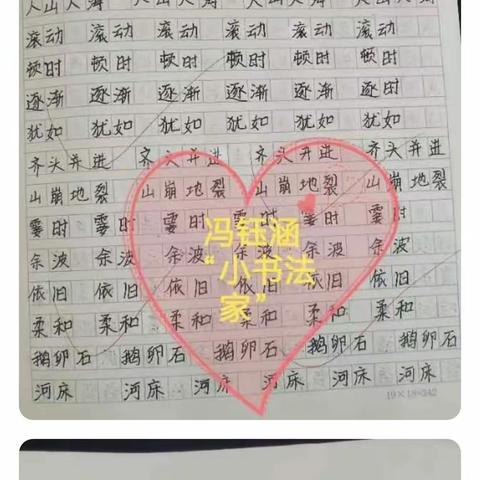 人山人海 人山人海 人山人海
滚动 滚动 滚动 滚动 滚动 滚动
顿时 顿时 顿时 顿时 顿时 顿时
逐渐 逐渐 逐渐 逐渐 逐渐 逐渐
犹如 犹如 犹如 犹如 犹如 犹如
齐头并进 齐头并进 齐头并进 齐头并进
山崩地裂 山崩地裂 山崩地裂 山崩地裂
霎时 霎时 霎时 霎时 霎时 霎时
余波 余波 余波 余波 余波 余波
依旧 依旧 依旧 依旧 依旧 依旧
柔和 柔和 柔和 柔和 柔和 柔和
鹅卵石 鹅卵石 鹅卵石 鹅卵石 鹅卵石
河床 河床 河床 河床 河床 河床
冯钰涵
“小书法
家”
19×18=342